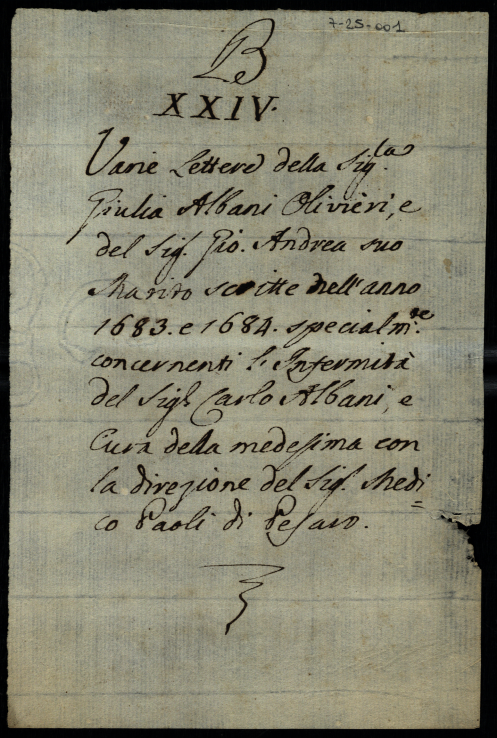 7-25-001
B
XXIV.
Varie Lettere della Sig.la
Giulia Albani Olivieri, e
del Sig.r Gio. Andrea suo
Marito scritte nell'anno
1683. e 1684. specialm.te
concernenti l'Infermità
del Sig.r Carlo Albani, e
Cura della medesima con
la direzione del Sig.r Medi=
co Paoli di Pesaro.